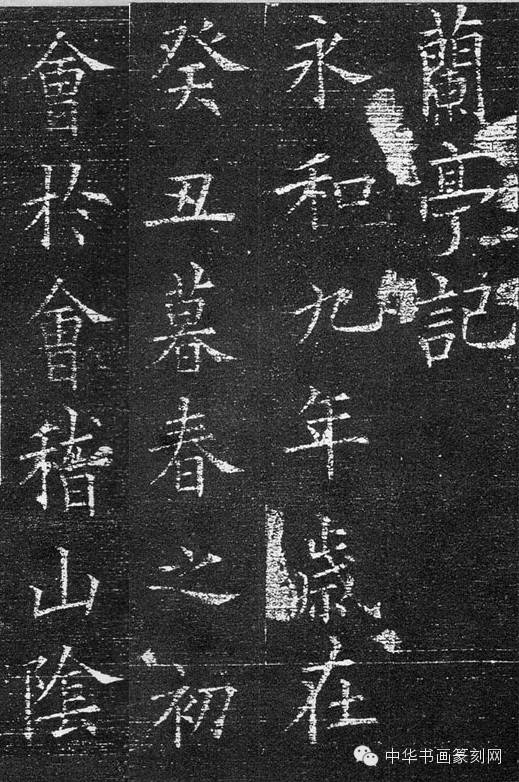 蘭亭記
永和九年歲在
癸丑暮春之初
會於會稽山陰
中华书画篆刻网